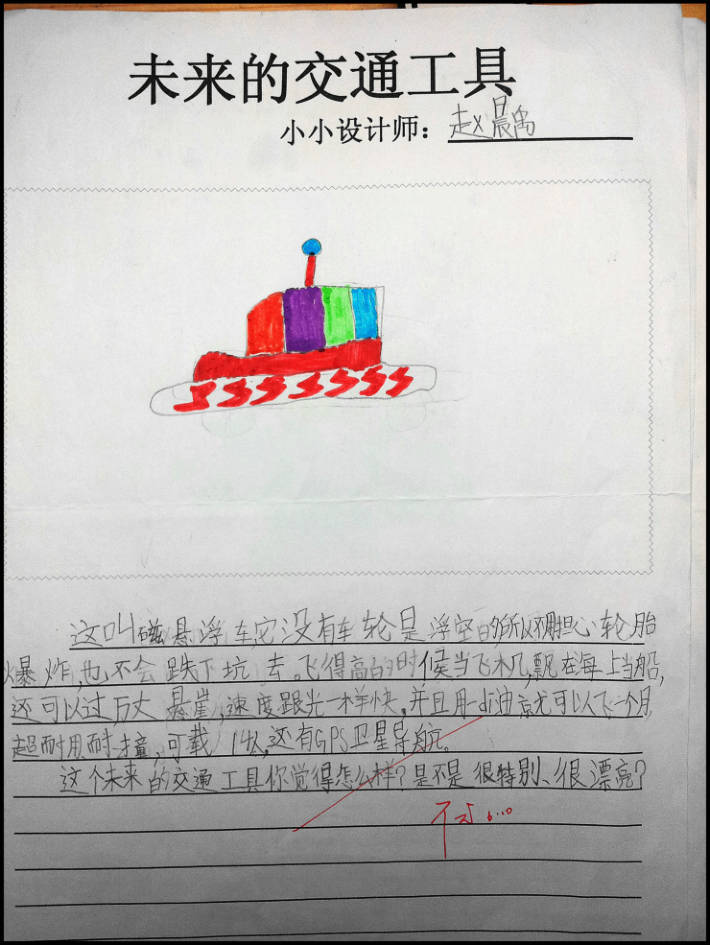 未来的交通工具
小小设计师：赵晨禹
这叫磁悬浮车,它没有车轮是浮空的所以不用担心轮胎
爆炸,也不会跌下坑去。飞得高的时候当飞机,飘在海上当船,
还可以过万丈悬崖,速度跟光一样快。并且用一小油就可以飞一个月
超耐用耐撞,可载1人,还有GPS卫星导航。
这个未来的交通工具你觉得怎么样?是不是很特别、很漂亮?